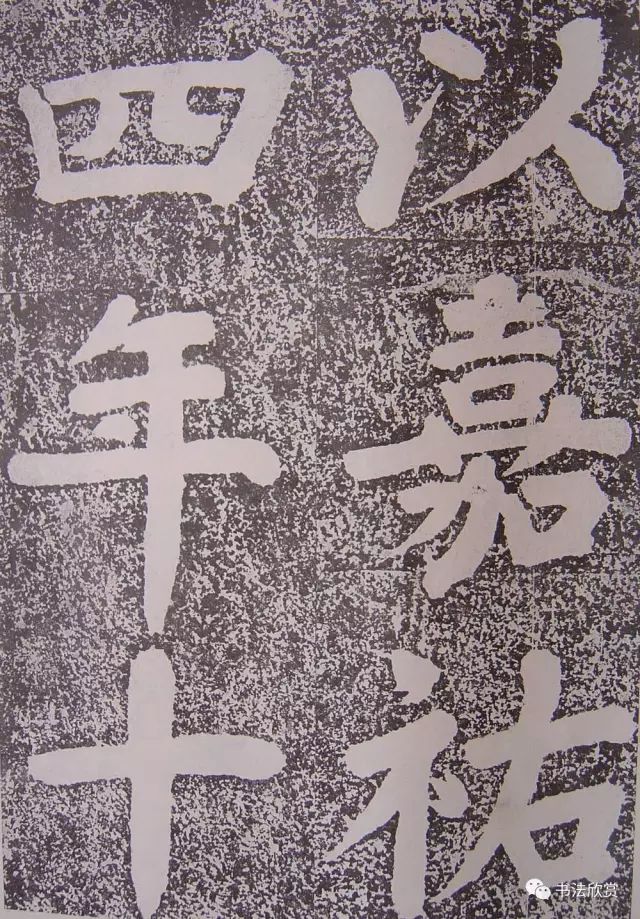 以嘉祐
四年十
书法欣赏